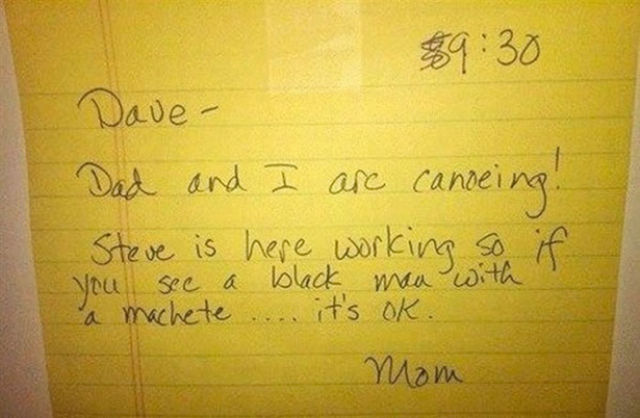 9:30
Dave-
Dad and I are canoeing!
Steve is here working so if
you see a black man with
a machete .... it's OK.
Mom